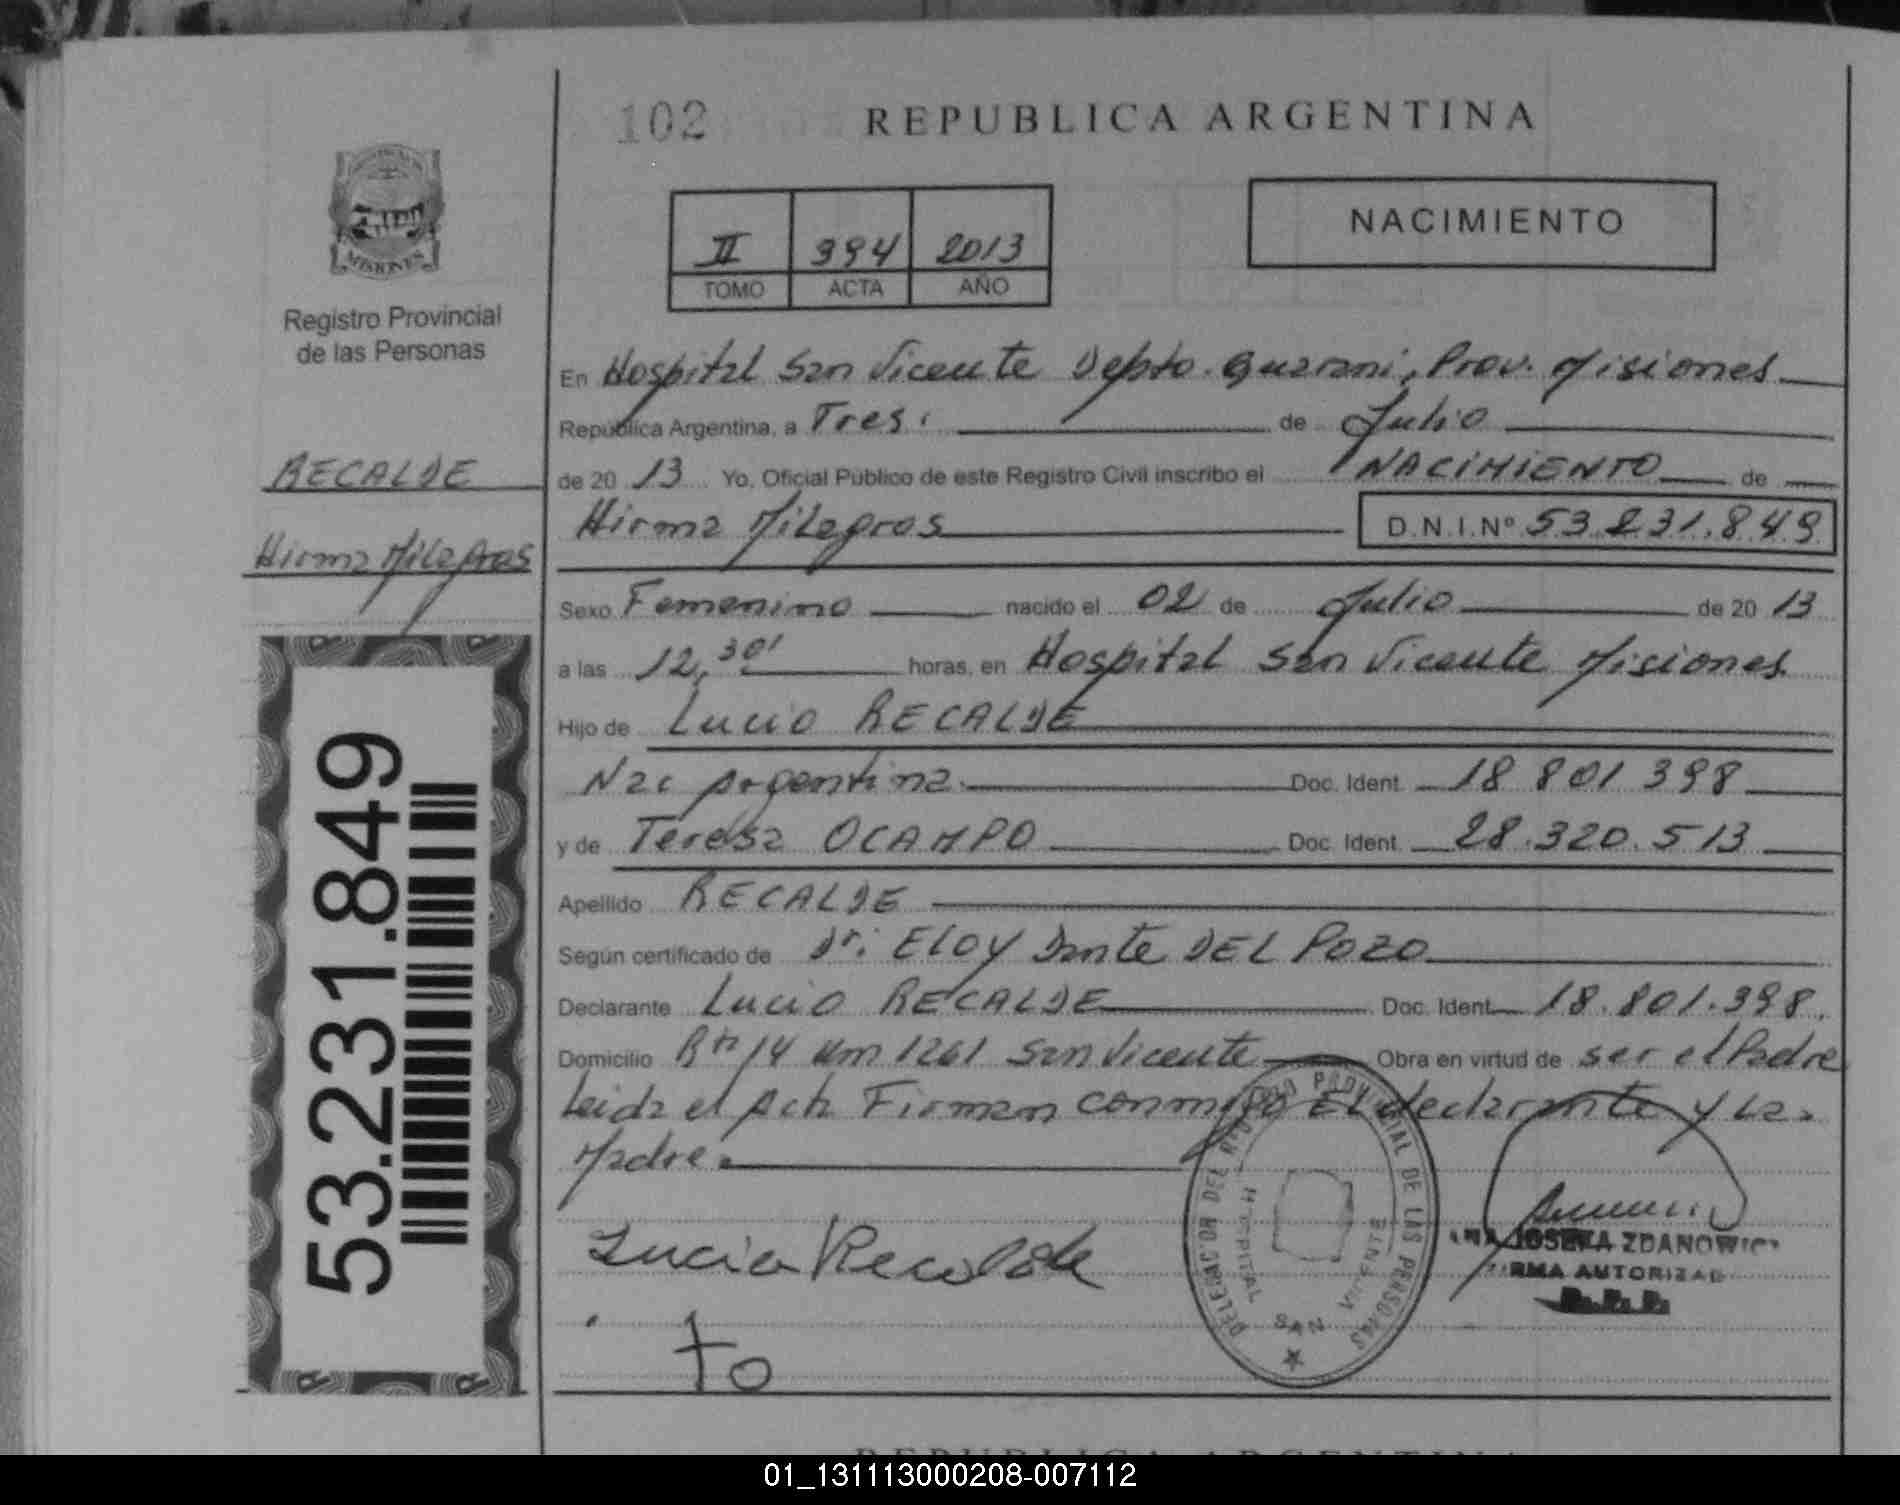 102
REPUBLICA ARGENTINA
NACIMIENTO
II 394 2013
TOMO ACTA AÑO
MISIONES
Registro Provincial
de las Personas
RECALDE
Hirma Milagros
53.231.849
En Hospital San Vicente Depto. Guarani, Prov. Misiones
República Argentina, a Tres. de Julio
de 20 13 Yo, Oficial Público de este Registro Civil inscribo el NACIMIENTO de
Hirma Milagros D.N.I.Nº 53.231.849
Sexo Femenino nacido el 02 de Julio de 20 13
a las 12,30' horas, en Hospital San Vicente Misiones
Hijo de Lucio RECALDE
Nac Argentina Doc. Ident. 18 801 398
y de Teresa OCAMPO Doc. Ident. 28.320.513
Apellido RECALDE
Según certificado de Dr. ELOY Dante DEL POZO
Declarante Lucio RECALDE Doc. Ident. 18.801.398.
Domicilio Rta 14 Km 1261 San Vicente Obra en virtud de ser el Padre
Leida el Acta Firman conmigo EL declarante y La
Madre.
DELEGACION DEL REGISTRO PROVINCIAL DE LAS PERSONAS
HOSPITAL SAN VICENTE
Lucio Recalde
JOSEFA ZDANOWICZ
FIRMA AUTORIZAD
to
REPUBLICA ARGENTINA
01_131113000208-007112